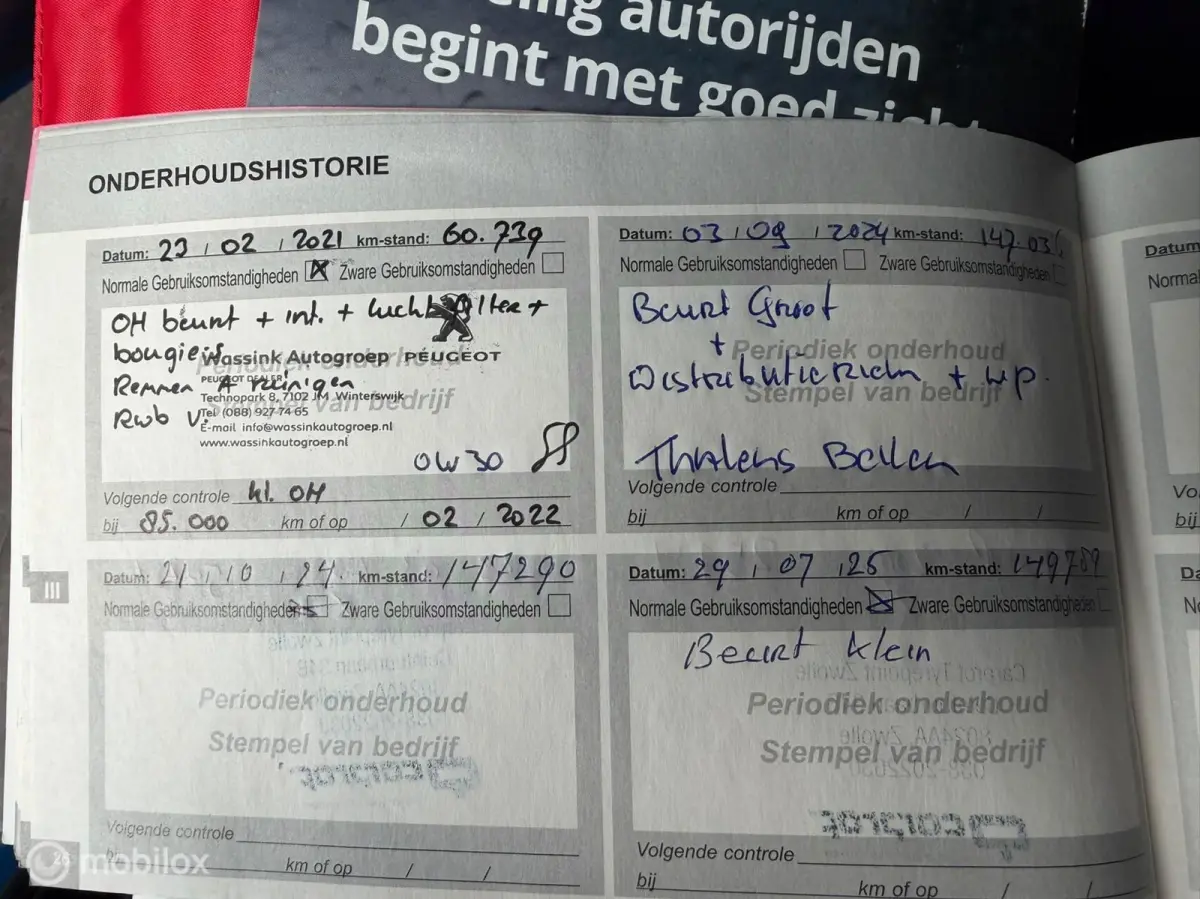 autorijden
begint met goed zicht
ONDERHOUDSHISTORIE
Datum: 23 / 02 / 2021 km-stand: 60.739
Normale Gebruiksomstandigheden Zware Gebruiksomstandigheden
OH beurt + int. + luchtfilter +
bougies
Wassink Autogroep PEUGEOT
Remmen A reinigen
PEUGEOT DEALER
Technopark 8, 7102 JM Winterswijk
Rwb V.
Tel (088) 927 74 65
E-mail info@wassinkautogroep.nl
www.wassinkautogroep.nl
Periodiek onderhoud
Stempel van bedrijf
OW30
Volgende controle kl. OH
bij 85.000 km of op / 02 / 2022
Datum: 03 / 09 / 2024 km-stand: 147.03
Normale Gebruiksomstandigheden Zware Gebruiksomstandigheden
Beurt Groot
+
Periodiek onderhoud
Distributieriem + wp.
Stempel van bedrijf
Volgende controle
bij km of op / /
III
Datum: 21 / 10 / 24 km-stand: 147290
Normale Gebruiksomstandigheden Zware Gebruiksomstandigheden
Periodiek onderhoud
Stempel van bedrijf
Volgende controle
bij km of op / /
Datum: 29 / 07 / 25 km-stand: 149789
Normale Gebruiksomstandigheden Zware Gebruiksomstandigheden
Beurt klein
Periodiek onderhoud
Stempel van bedrijf
Volgende controle
bij km of op / /
Datum
Norma
Vo
bij
26
mobilox